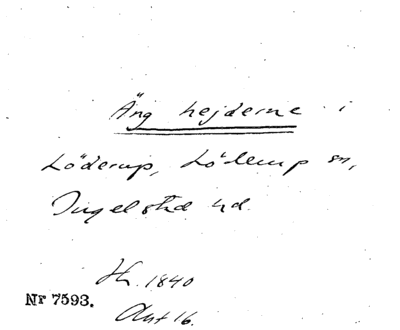 Äng hejderne i
Löderup, Löderup sn,
Ingelstad hd.
H. 1840
Nr 7593.
Ant 16.